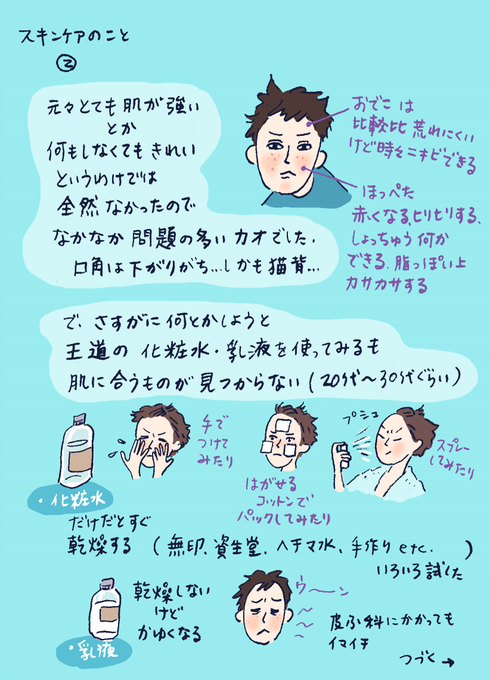 スキンケアのこと
②
元々とても肌が強い
とか
何もしなくてもきれい
というわけでは
全然なかったので
なかなか問題の多いカオでした.
口角は下がりがち…しかも猫背…
おでこは
比較比荒れにくい
けど時々ニキビできる
ほっぺた
赤くなる,ヒリヒリする、
しょっちゅう何か
できる.脂っぽい上
カサカサする
で、さすがに何とかしようと
王道の化粧水・乳液を使ってみるも
肌に合うものが見つからない(20代〜30代ぐらい)
手で
つけて
みたり
はがせる
コットンで
パックしてみたり
プシュ
スプレー
してみたり
・化粧水
だけだとすぐ
乾燥する(無印.資生堂.ヘチマ水、手作りetc.)
いろいろ試した
・乳液
乾燥しない
けど
かゆくなる
ウ〜ン
皮ふ科にかかっても
イマイチ
つづく→